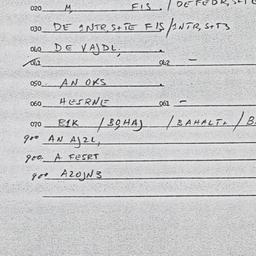 020 M, FIS. / DEFEDR, S+TE
030 DE INTR, S+TE FIS/INTR, S+T3
040 DE VAJDL,
042 062 -
050 AN OKS
060 HESRNE 061 -
070 E1K / BQHAJ / BAHALT+ / B
900 AN AJ2L,
900 A FESRT
900 A2OJN3